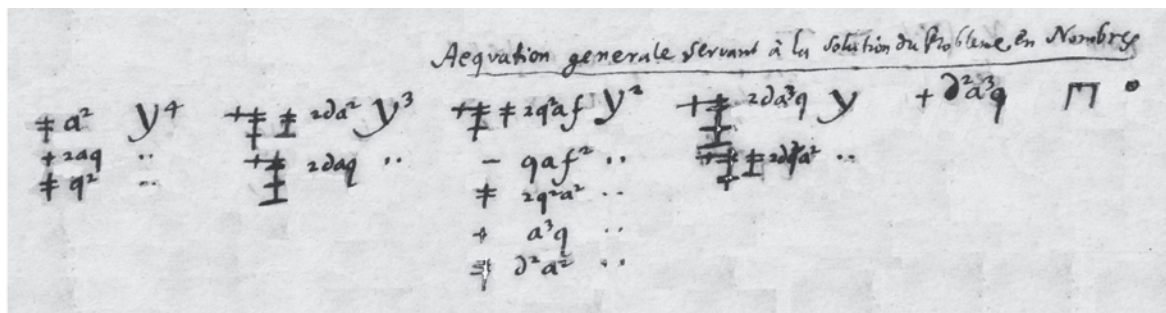 Aequation generale servant à la solution du Probleme en Nombres
⧧ a² y⁴ ⧧ 2∂a² y³ ⧧ 2q²af y² 2∂a³q y + ∂²a³q ⊓ 0
+ 2aq .. 2∂aq .. - qaf² .. ⧧ 2∂q²a² ..
⧧ q² .. ⧧ 2q²a² ..
+ a³q ..
∂²a² ..